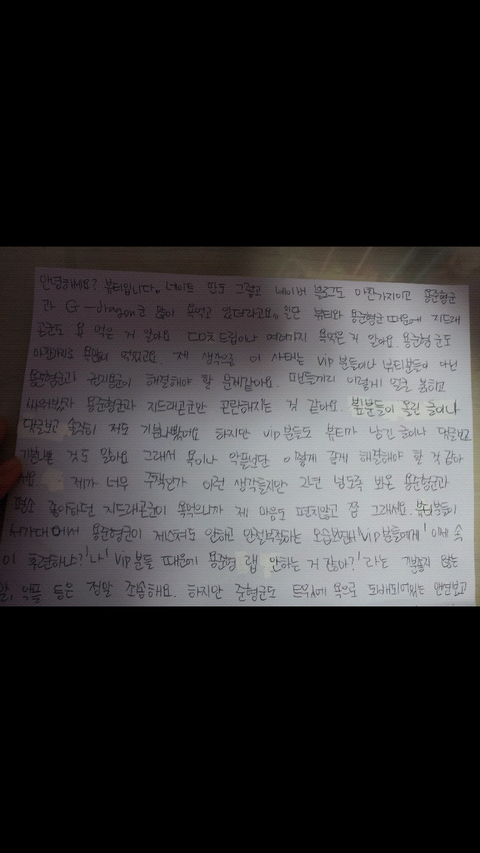 안녕하세요? 뷰티입니다. 네이트 판도 그렇고 네이버 블로그도 마찬가지이고 용준형군
과 G-dragon군 많이 욕먹고 있더라고요. 일단 뷰티와 용준형군 때문에 지드래
곤군도 욕 먹은 거 알아요 드립이나 여러가지 욕먹은 거 알아요. 용준형군도
마찬가지로 욕많이 먹었고요 제 생각은 이 사태는 vip분들이나 뷰티분들이 아닌
용준형군과 권지용군이 해결해야 할 문제같아요. 팬들끼리 이렇게 열을 올리고
싸워봤자 용준형군과 지드래곤군만 곤란해지는 것 같아요. 분들이 올린 글이나
댓글보고 솔직히 저도 기분나빴어요 하지만 vip분들도 뷰티가 남긴 글이나 댓글보고
기분나쁜 것도 알아요 그래서 욕이나 악플보단 이렇게 좋게 해결해야 할 것 같아
제가 너무 주책인가 이런 생각들지만 2년 넘도록 봐온 용준형군과
평소 좋아하던 지드래곤군이 욕먹으니까 제 마음도 편치않고 좀 그래서요. 뷰티분들이
에서 용준형군이 제스쳐도 안하고 모습보면서 vip분들에게 '이제 속
이 후련하냐?'나 'vip분들 때문에 용준형 랩 안하는 거 잖아?'라는 기분좋지 않은
말, 악플 등은 정말 죄송해요. 하지만 준형군도 트위에 욕으로 도배되어있는 멘션보고